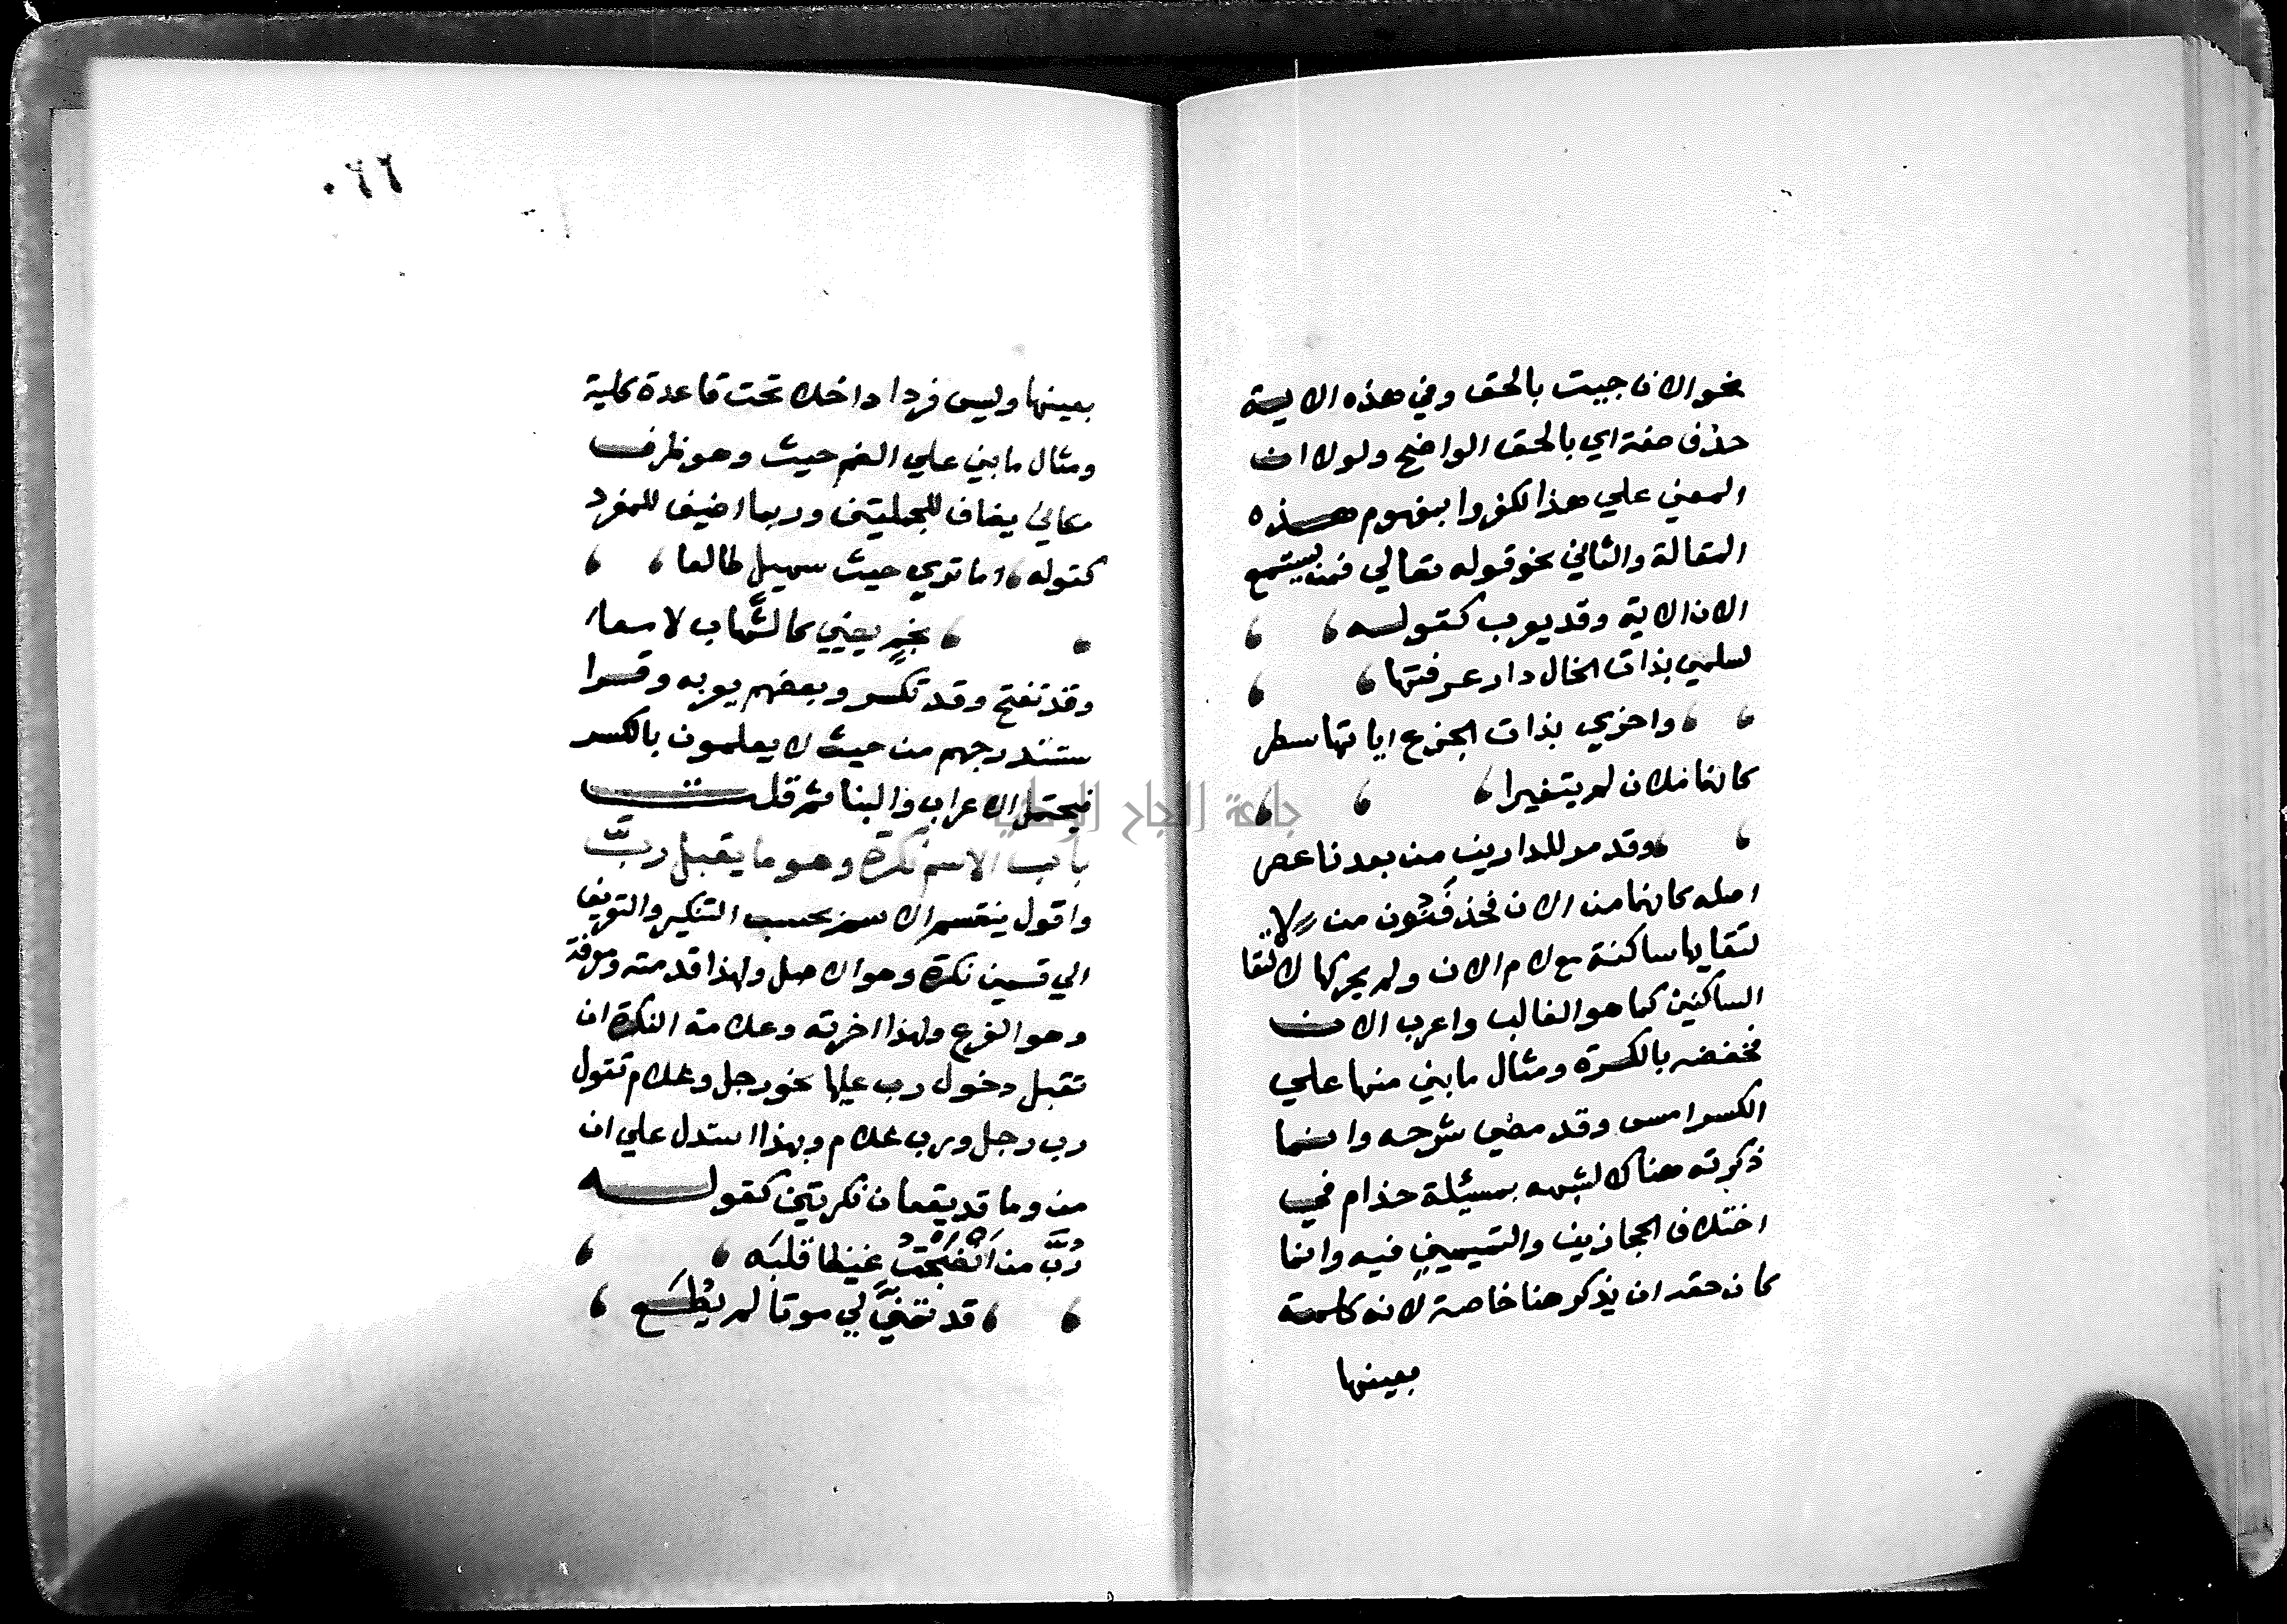 نحو الان جيت بالحق وفي هذه الايـة
حذف صفة اي بالحق الواضح ولولا ان
المعني علي هذا لكفروا بمفهوم هـذه
المقالة والثاني نحو قوله تعالي فمن يستمع
الان الاية وقد يعرب كقولـه
لسلمي بذات الخال دار عرفتها
واخري بذات الجزع اياتها سطر
كانهما ملان لم يتغيرا
وقد مر للدارين من بعدنا عصر
اصله كانهما من الان فحذف نون من لا
لتقايها ساكنة مع لام الان ولم يحركها لالتقا
الساكنين كما هو الغالب واعرب الان
فخفضه بالكسرة ومثال ما بني منها علي
الكسر امس وقد مضي شرحه وانما
ذكرته هناك لشبهه بمسئلة حذام في
اختلاف الحجازيين والتميميين فيه وانما
كان حقه ان يذكر هنا خاصة لانه كلمة
بعينها
٠٦٦
بعينها وليس فردا داخلا تحت قاعدة كلية
ومثال ما بني علي الضم حيث وهو ظرف
مكاني يضاف للجملتين وربما اضيف للمفرد
كقوله اما تري حيث سهيل طالعا
نجم يضيي كالشهاب لامعا
وقد تفتح وقد تكسر وبعضهم يعربه وقرا
سنستدرجهم من حيث لا يعلمون بالكسر
فيحتمل الاعراب والبنا ثم قلت
باب الاسم نكرة وهو ما يقبل ربّ
واقول ينقسم الاسم بحسب التنكير والتعريف
الي قسمين نكرة وهو الاصل ولهذا قدمته ومعرفة
وهو الفرع ولهذا اخرته وعلامة النكرة ان
تقبل دخول رب عليها نحو رجل وغلام تقول
رب رجل ورب غلام وبهذا استدل علي ان
من وما قد يقعان نكرتين كقولـه
رُبَّ من انضجت غيظا قلبَه
قد تمنّي لي موتا لم يُطَع
جامعة النجاح الوطنية